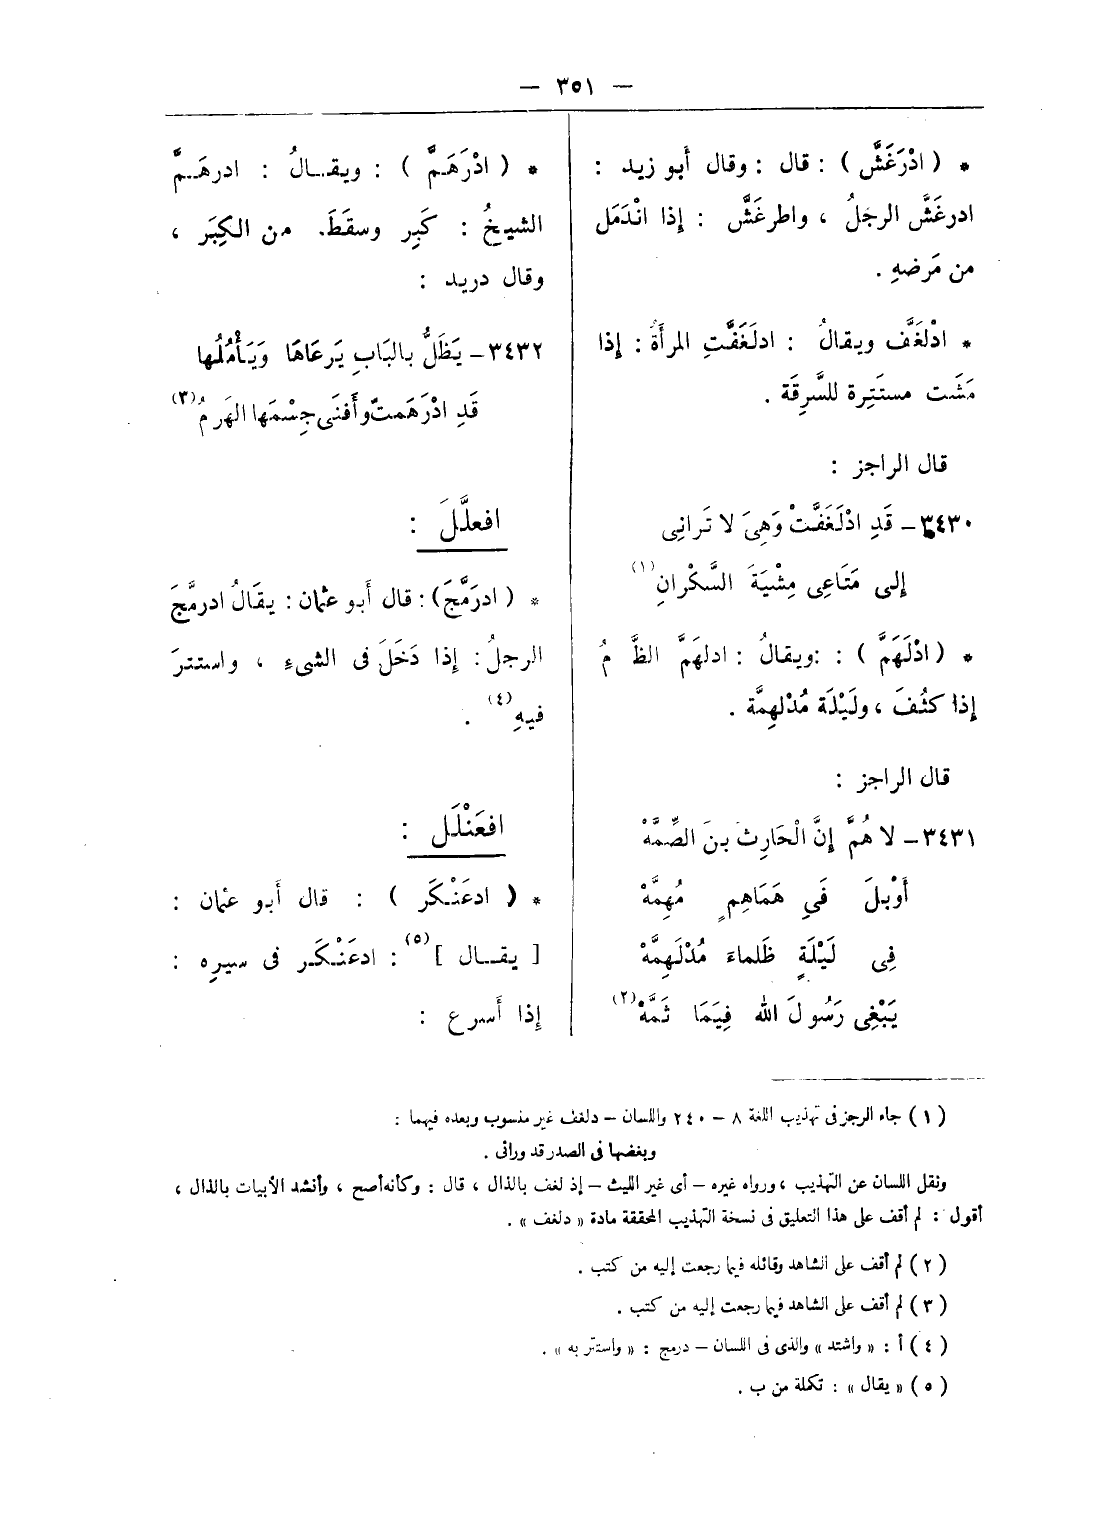 — ٣٥١ —
* ( ادْرَغَشَّ ) : قال : وقال أبو زيد :
ادرغَشَّ الرجلُ ، واطرغَشَّ : إذا انْدَمَل
من مَرضهِ .
* ادْلغَفَّ ويقالُ : ادلَغَفَّتِ المرأةُ : إذا
مَشَت مستَتِرة للسَّرِقَة .
قال الراجز :
٣٤٣٠ – قَدِ ادْلَغَفَّتْ وَهِىَ لا تَرانِى
إلى مَتَاعِى مِشْيَةَ السَّكْرانِ (١)
* ( ادْلَهَمَّ ) : :ويقالُ : ادلهَمَّ الظَّ مُ
إذا كثُفَ ، ولَيْلَة مُدْلهِمَّة .
قال الراجز :
٣٤٣١ – لا هُمَّ إنَّ الْحَارِث بنَ الصِّمَّهْ
أَوْبلَ فَىِ هَمَاهِمٍ مُهِمَّهْ
فِى لَيْلَةٍ ظَلماءَ مُدْلَهِمَّهْ
يَبْغِى رَسُولَ الله فِيَمَا ثَمَّهْ (٢)
* ( ادْرَهَمَّ ) : ويقــالُ : ادرهَــمَّ
الشيخُ : كَبِر وسقَطَ. من الكِبَر ،
وقال دريد :
٣٤٣٢ – يَظَلُّ بالبَابِ يَرعَاهَا وَيَأْمُلُها
قَدِ ادْرَهَمتْ وأَفنَى جِسْمَها الهَرمُ (٣)
افعلَّلَ :
* ( ادرَمَّجَ ) : قال أَبو عثمان : يقَالُ ادرمَّجَ
الرجلُ : إذا دَخَلَ فى الشىءِ ، واستترَ
فيهِ (٤) .
افعَنْلَل :
* ( ادعَنْكَر ) : قال أَبو عثمان :
[ يقــال ] (٥) : ادعَنْكَر فى سيرِه :
إذا أَسرع :
( ١ ) جاء الرجز فى تهذيب اللغة ٨ – ٢٤٠ واللسان – دلغف غير منسوب وبعده فيهما :
وبغضها فى الصدر قد ورانى .
ونقل اللسان عن التهذيب ، ورواه غيره – أى غير الليث – إذ لغف بالذال ، قال : وكأنه أصح ، وأنشد الأبيات بالذال ،
أقول : لم أقف على هذا التعليق فى نسخة التهذيب المحققة مادة « دلغف » .
( ٢ ) لم أقف على الشاهد وقائله فيما رجعت إليه من كتب .
( ٣ ) لم أقف على الشاهد فيما رجعت إليه من كتب .
( ٤ ) أ : « واشتد » والذى فى اللسان – درمج : « واستتر به » .
( ٥ ) « يقال » : تكملة من ب .